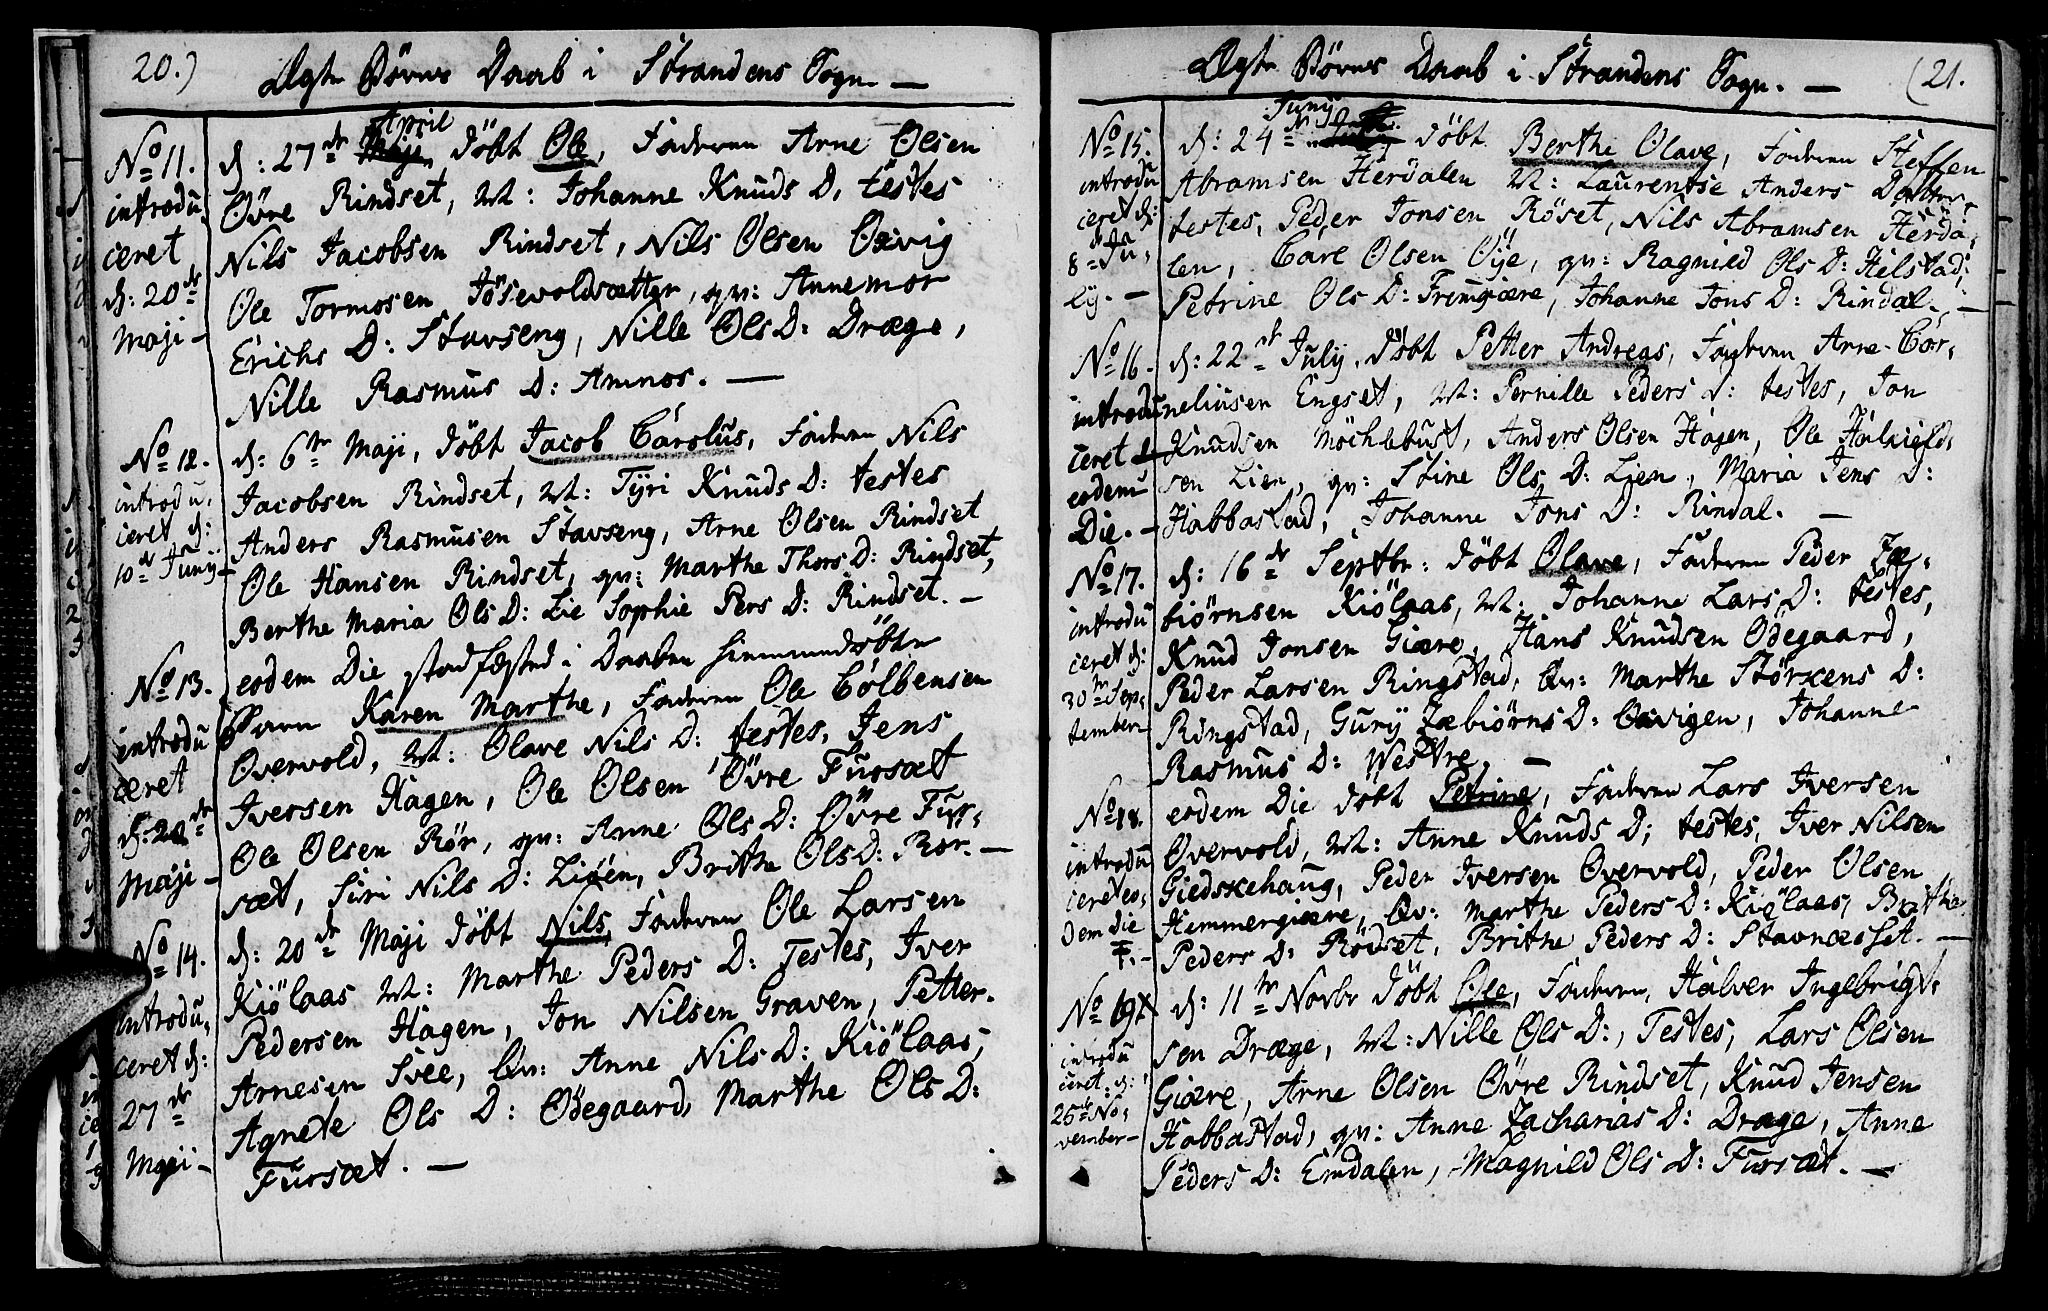 20.)
Ægte Börns Daab i Strandens Sogn. —
No 11.
introdu,
ceret
d: 20de
Maji —
d: 27de April Maji, döbt Ole, Faderen Arne Olsen
Øvre Rindset, M: Johanne Knuds D, testes
Nils Jacobsen Rindset, Nils Olsen Oxvig
Ole Tormosen Jösevoldsætter, qv: Annemor
Erichs D: Stavseng, Nille Ols D: Dræge,
Nille Rasmus D: Amnos. —
No 12.
introdu,
ceret d:
10de Junÿ —
d: 6te Maji, döbt Jacob Carolus, Faderen Nils
Jacobsen Rindset, M: Tÿri Knuds D: testes
Anders Rasmusen Stavseng, Arne Olsen Rindset
Ole Hansen Rindset, qv: Marthe Thors D: Rindset,
Berthe Maria Ols D: Lie Sophie Pers D: Rindset. —
No 13.
introdu
ceret
d: 20de
Maji —
eodem Die stadfæsted i Daaben hiemmedöbte
Barn Karen Marthe, Faderen Ole Colbensen
Overvold, M: Olave Nils D: testes, Jens
Iversen Hagen, Ole Olsen Øvre Fursæt
Ole Olsen Rör, qv: Anne Ols D: Øvre Fur,
sæt, Siri Nils D: Liöen, Brithe Ols D: Rör. —
No 14.
introdu,
ceret d:
27de
Maji —
d: 20de Maji döbt Nils, Faderen Ole Larsen
Kiölaas M: Marthe Peders D: Testes, Iver
Pedersen Hagen, Jon Nilsen Graven, Petter
Arnesen Svee, Qv: Anne Nils D: Kiölaas,
Agnete Ols D: Ødegaard, Marthe Ols D:
Fursæt. —
Ægte Börns Daab i Strandens Sogn. —
(21.
No 15.
introdu
ceret d:
8de Ju,
lÿ. —
d: 24de Junÿ döbt Berthe Olave, Faderen Steffen
Abramsen Herdalen M: Laurentse Anders Datter,
testes, Peder Jonsen Röset, Nils Abramsen Herda,
len, Carl Olsen Öÿe, qv: Ragnild Ols D: Helstad,
Petrine Ols D: Fremgiære, Johanne Jons D: Rindal. —
No 16.
introdu
ceret
eodem
Die. —
d: 22de Julÿ, döbt Petter Andreas, Faderen Arne Cor,
neliusen Engset, M: Pernille Peders D: testes, Jon
Knudsen Möchlebust, Anders Olsen Hagen, Ole Halkield,
sen Lien, qv: Stine Ols D: Lien, Maria Jens D:
Habbastad, Johanne Jons D: Rindal. —
No 17.
introdu
ceret d:
30te Sep,
tember
d: 16de Septbr: döbt Olave, Faderen Peder Zæ,
biörnsen Kiölaas, M: Johanne Lars D: testes,
Knud Jonsen Giære, Hans Knudsen Ödegaard,
Peder Larsen Ringstad, Qv: Marthe Störkens D:
Ringstad, Gurÿ Zæbiörns D: Oxvigen, Johanne
Rasmus D: Westre. —
No 18.
introdu
ceret eo,
dem die
eodem Die döbt Petrine, Faderen Lars Iversen
Overvold, M: Anne Knuds D; testes, Iver Nilsen
Giedskehaug, Peder Iversen Overvold, Peder Olsen
Hemmergiære, Qv: Marthe Peders D: Kiölaas, Brithe
Peders D: Rödset, Brithe Peders D: Stavnæsset. —
No 19
introdu
ceret d:
25de No,
vember —
d: 11te Novbr döbt Ole, Faderen, Halver Ingebrigt,
sen Dræge, M: Nille Ols D:, Testes, Lars Olsen
Giære, Arne Olsen Øvre Rindset, Knud Jensen
Habbastad, qv: Anne Zacharias D: Dræge, Anne
Peders D: Emdalen, Magnild Ols D: Fursæt. —